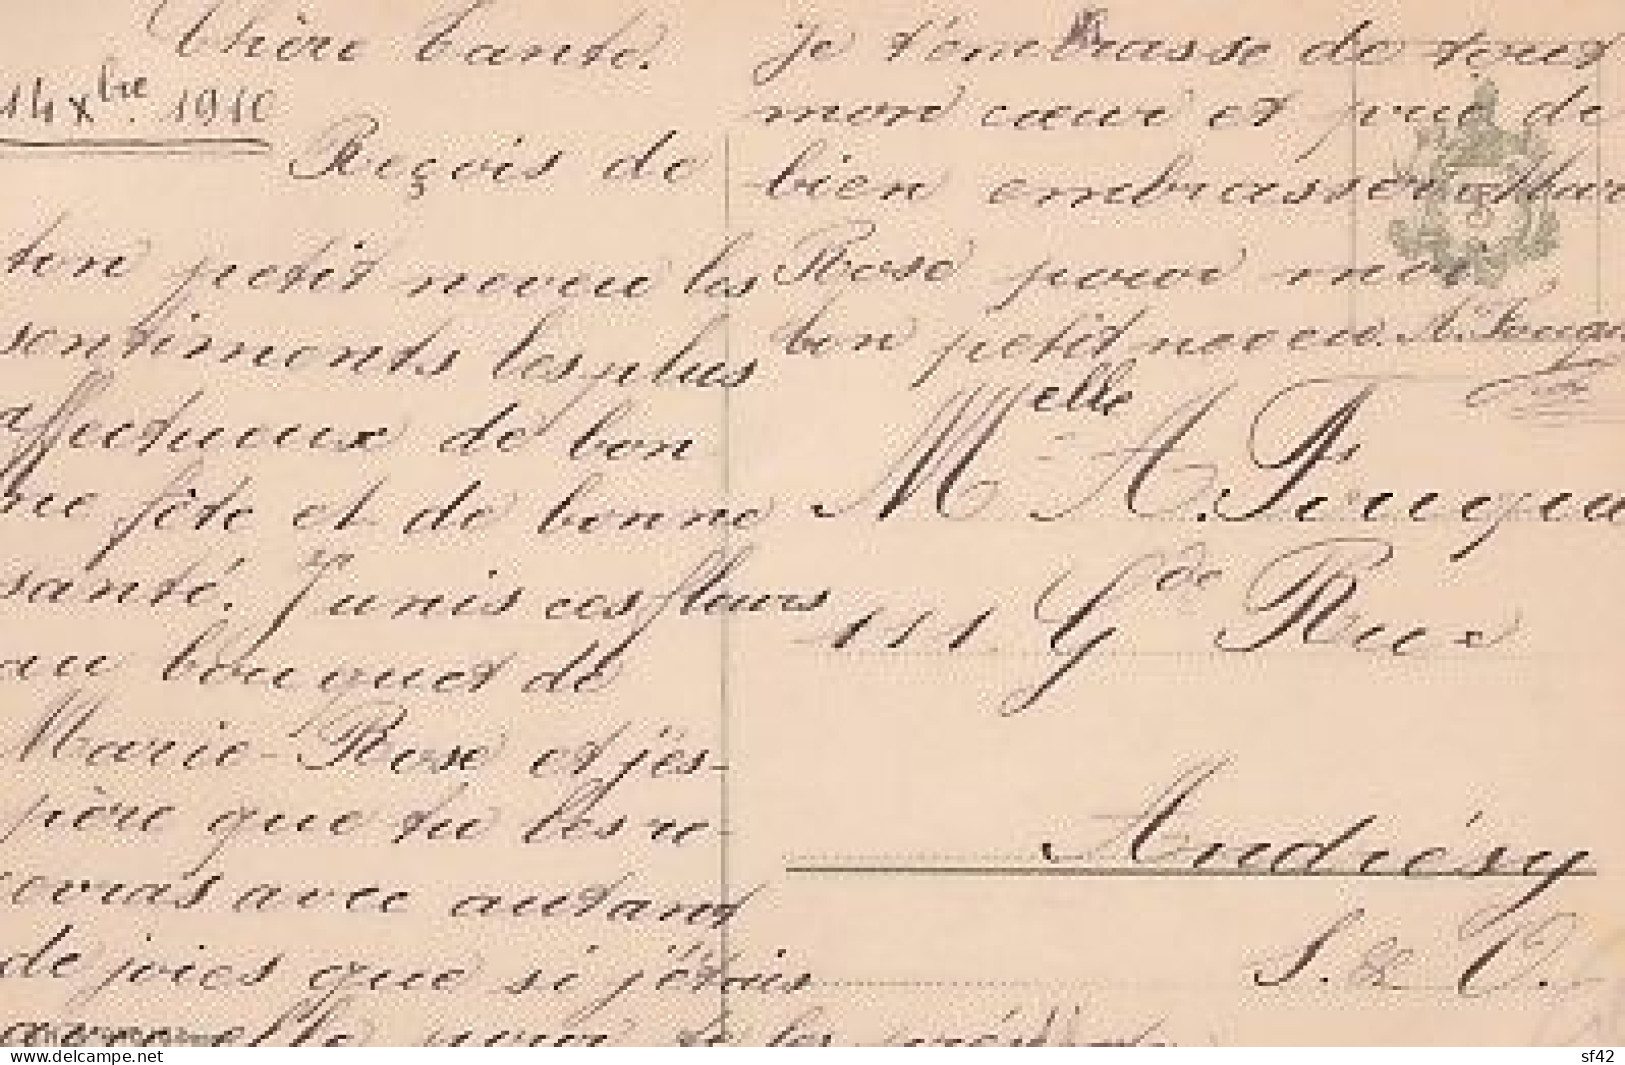 Chère tante.
14 Xbre. 1910
Reçois de
ton petit neveu les
sentiments les plus
affectueux de bon
ne fête et de bonne
santé. J'unis ces fleurs
au bouquet de
Marie-Rose et j'es-
père que tu les re-
cevras avec autant
de joies que si j'étais
auprès d'elle pour te les présenter
Je t'embrasse de tout
mon cœur et prie de
bien embrasser Marie
Rose pour moi
ton petit neveu. A.
Melle A.
111. Gde Rue
Andrésy
S. & O.
delcampe.net
sf42